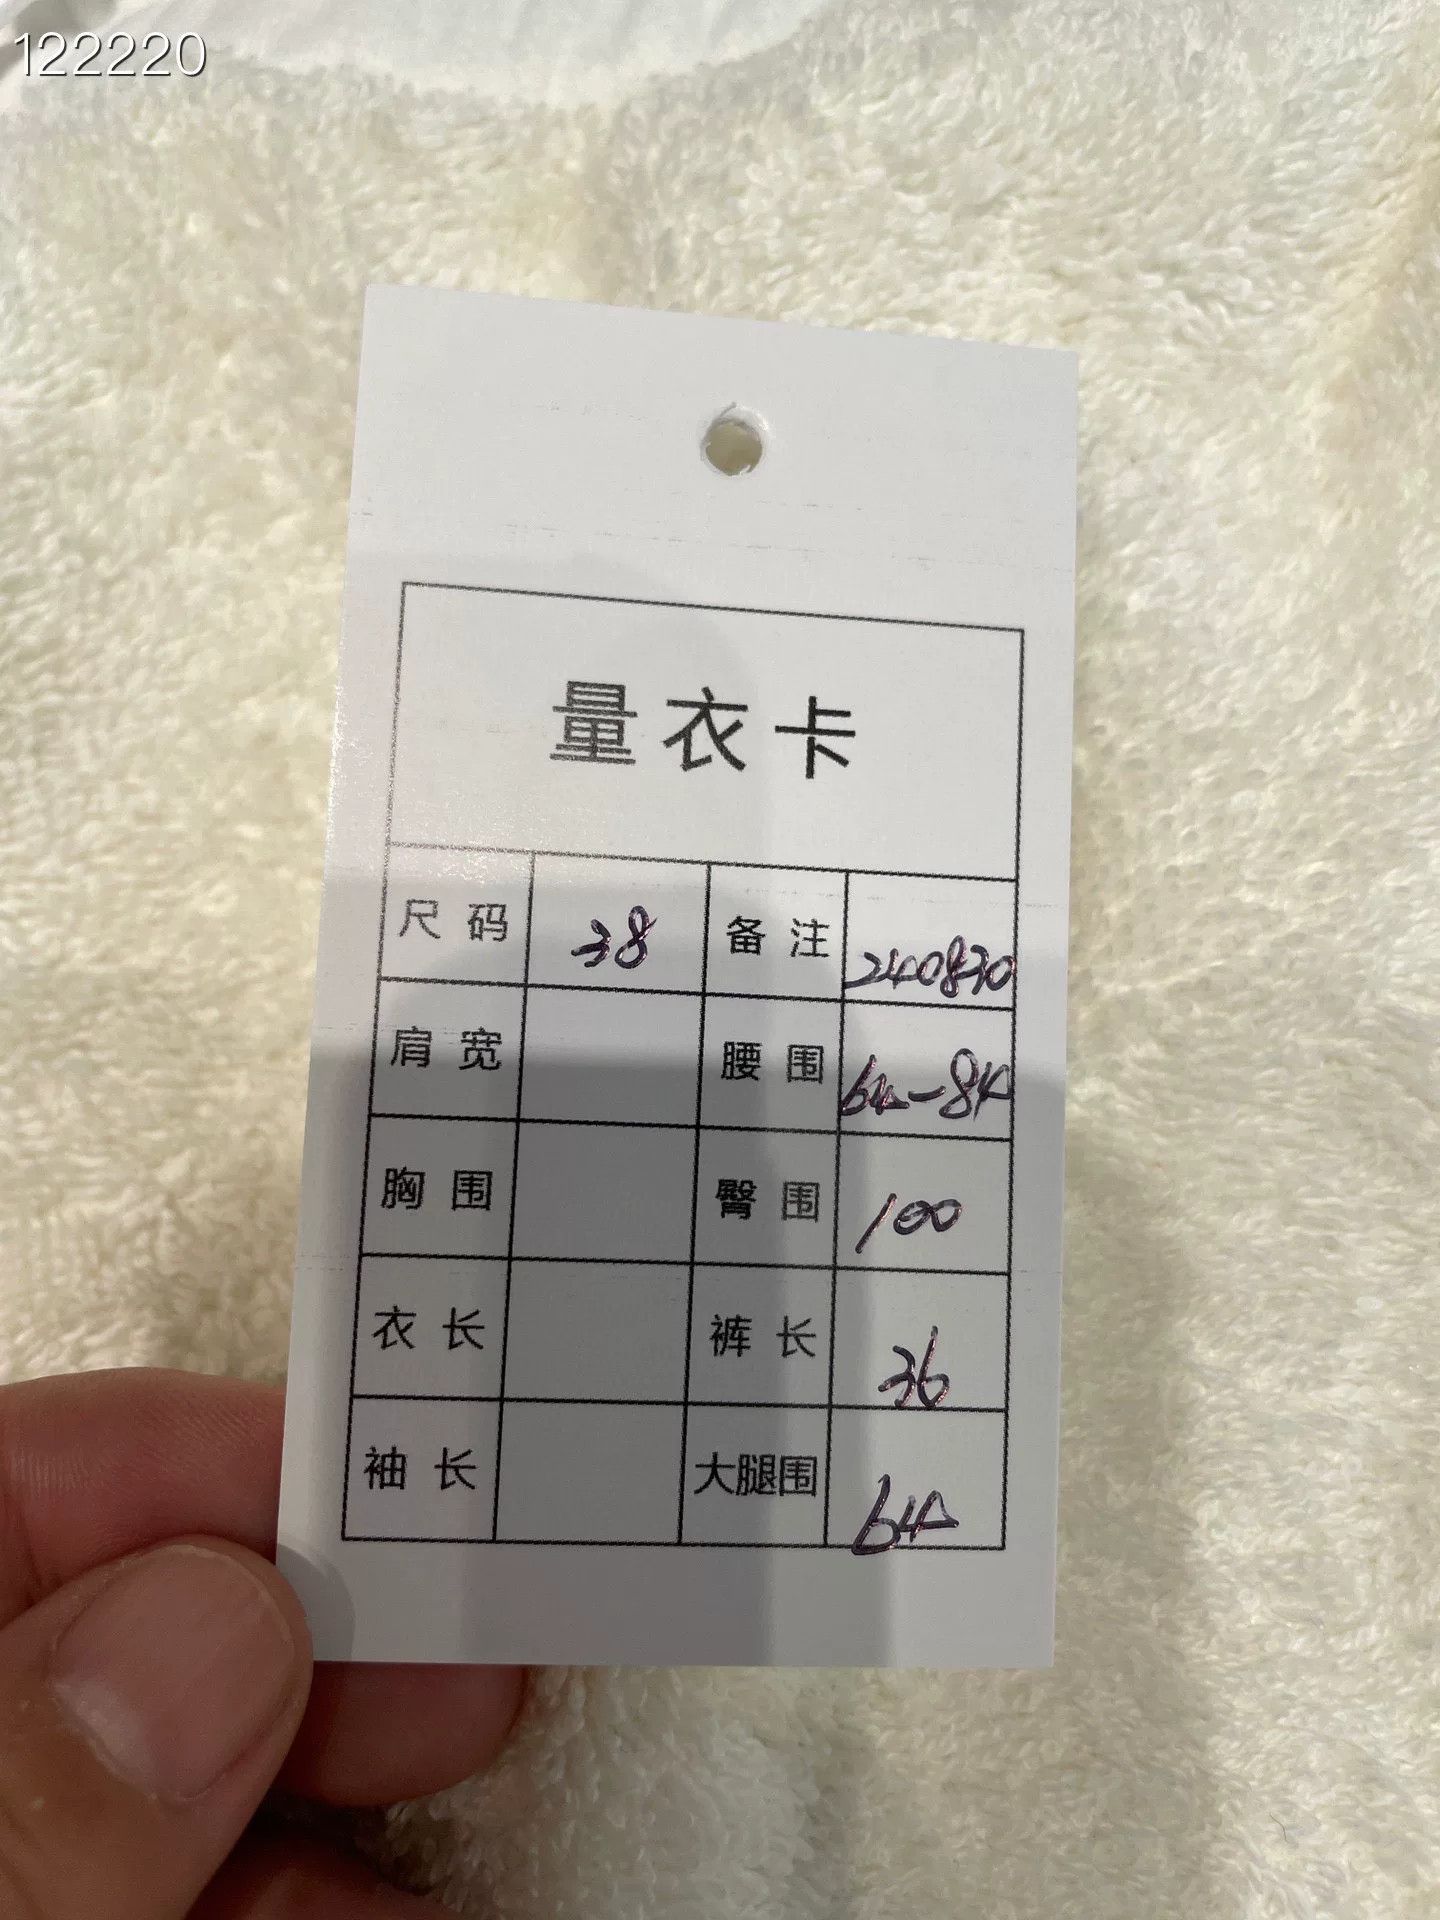 122220
量衣卡
尺码 38 备注 240830
肩宽 腰围 64-84
胸围 臀围 100
衣长 裤长 36
袖长 大腿围 64